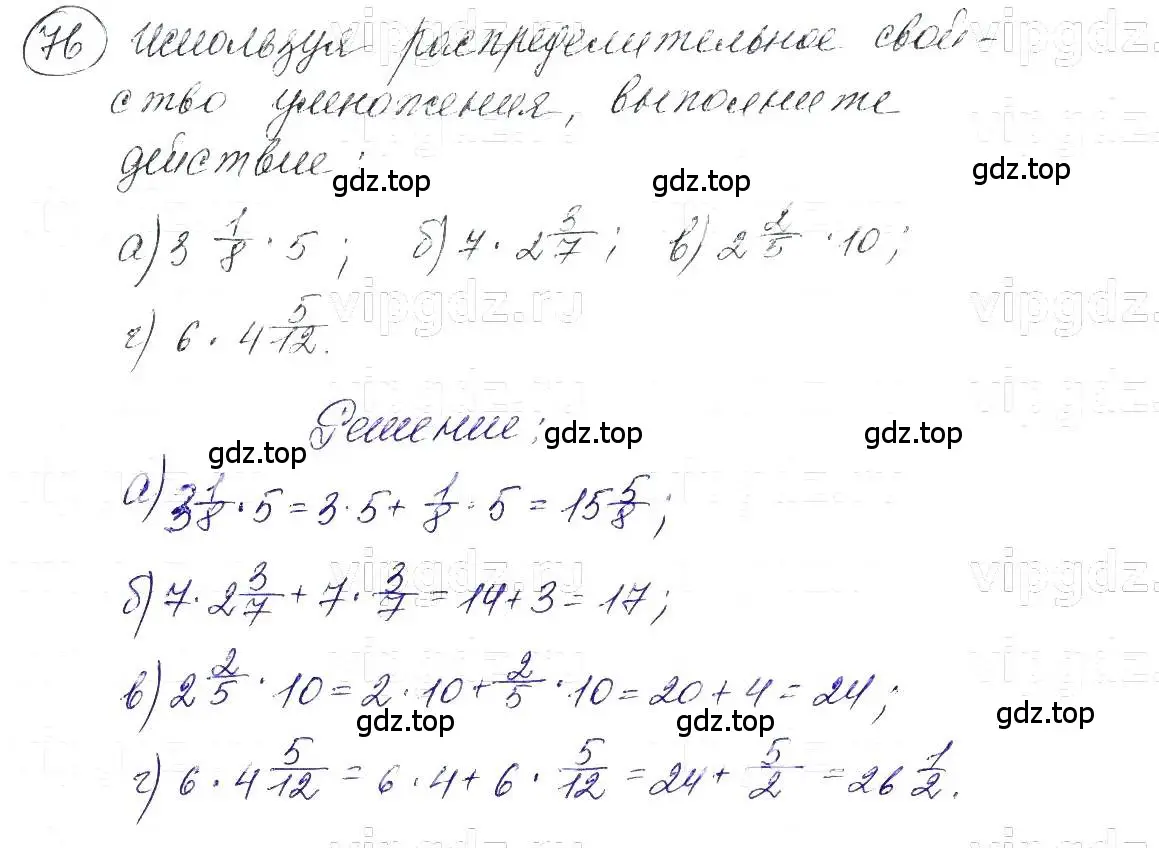 76 Используя распределительное свой-
ство умножения, выполните
действие:
gdz.top gdz.top gdz.top
а) 3 1/8 · 5; б) 7 · 2 3/7; в) 2 2/5 · 10;
г) 6 · 4 5/12.
vipgdz.ru vipgdz.ru
Решение:
gdz.top gdz.top gdz.top
а) 3 1/8 · 5 = 3 · 5 + 1/8 · 5 = 15 5/8;
б) 7 · 2 3/7 + 7 · 3/7 = 14 + 3 = 17;
vipgdz.ru vipgdz.ru
в) 2 2/5 · 10 = 2 · 10 + 2/5 · 10 = 20 + 4 = 24;
gdz.top gdz.top gdz.top
г) 6 · 4 5/12 = 6 · 4 + 6 · 5/12 = 24 + 5/2 = 26 1/2.